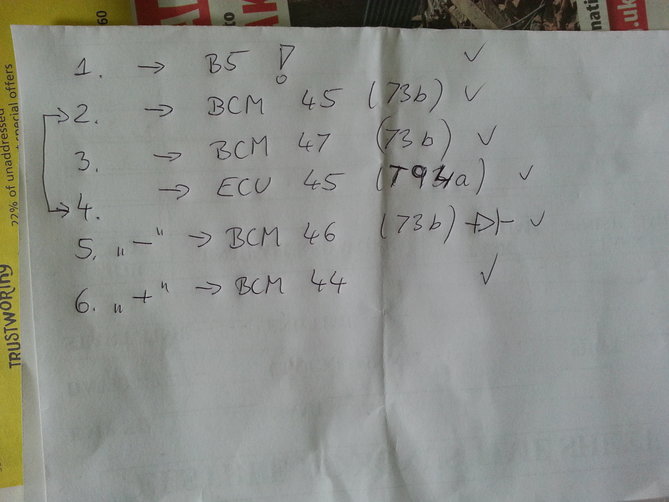 60
AK
co
nati
.uk
22% of unaddressed
special offers
TRUSTWORTHY
1. → B5 !  ✓
2. → BCM 45 (73b) ✓
3. → BCM 47 (73b) ✓
4. → ECU 45 (T94a) ✓
5. „-" → BCM 46 (73b) ✓
6. „+" → BCM 44 ✓